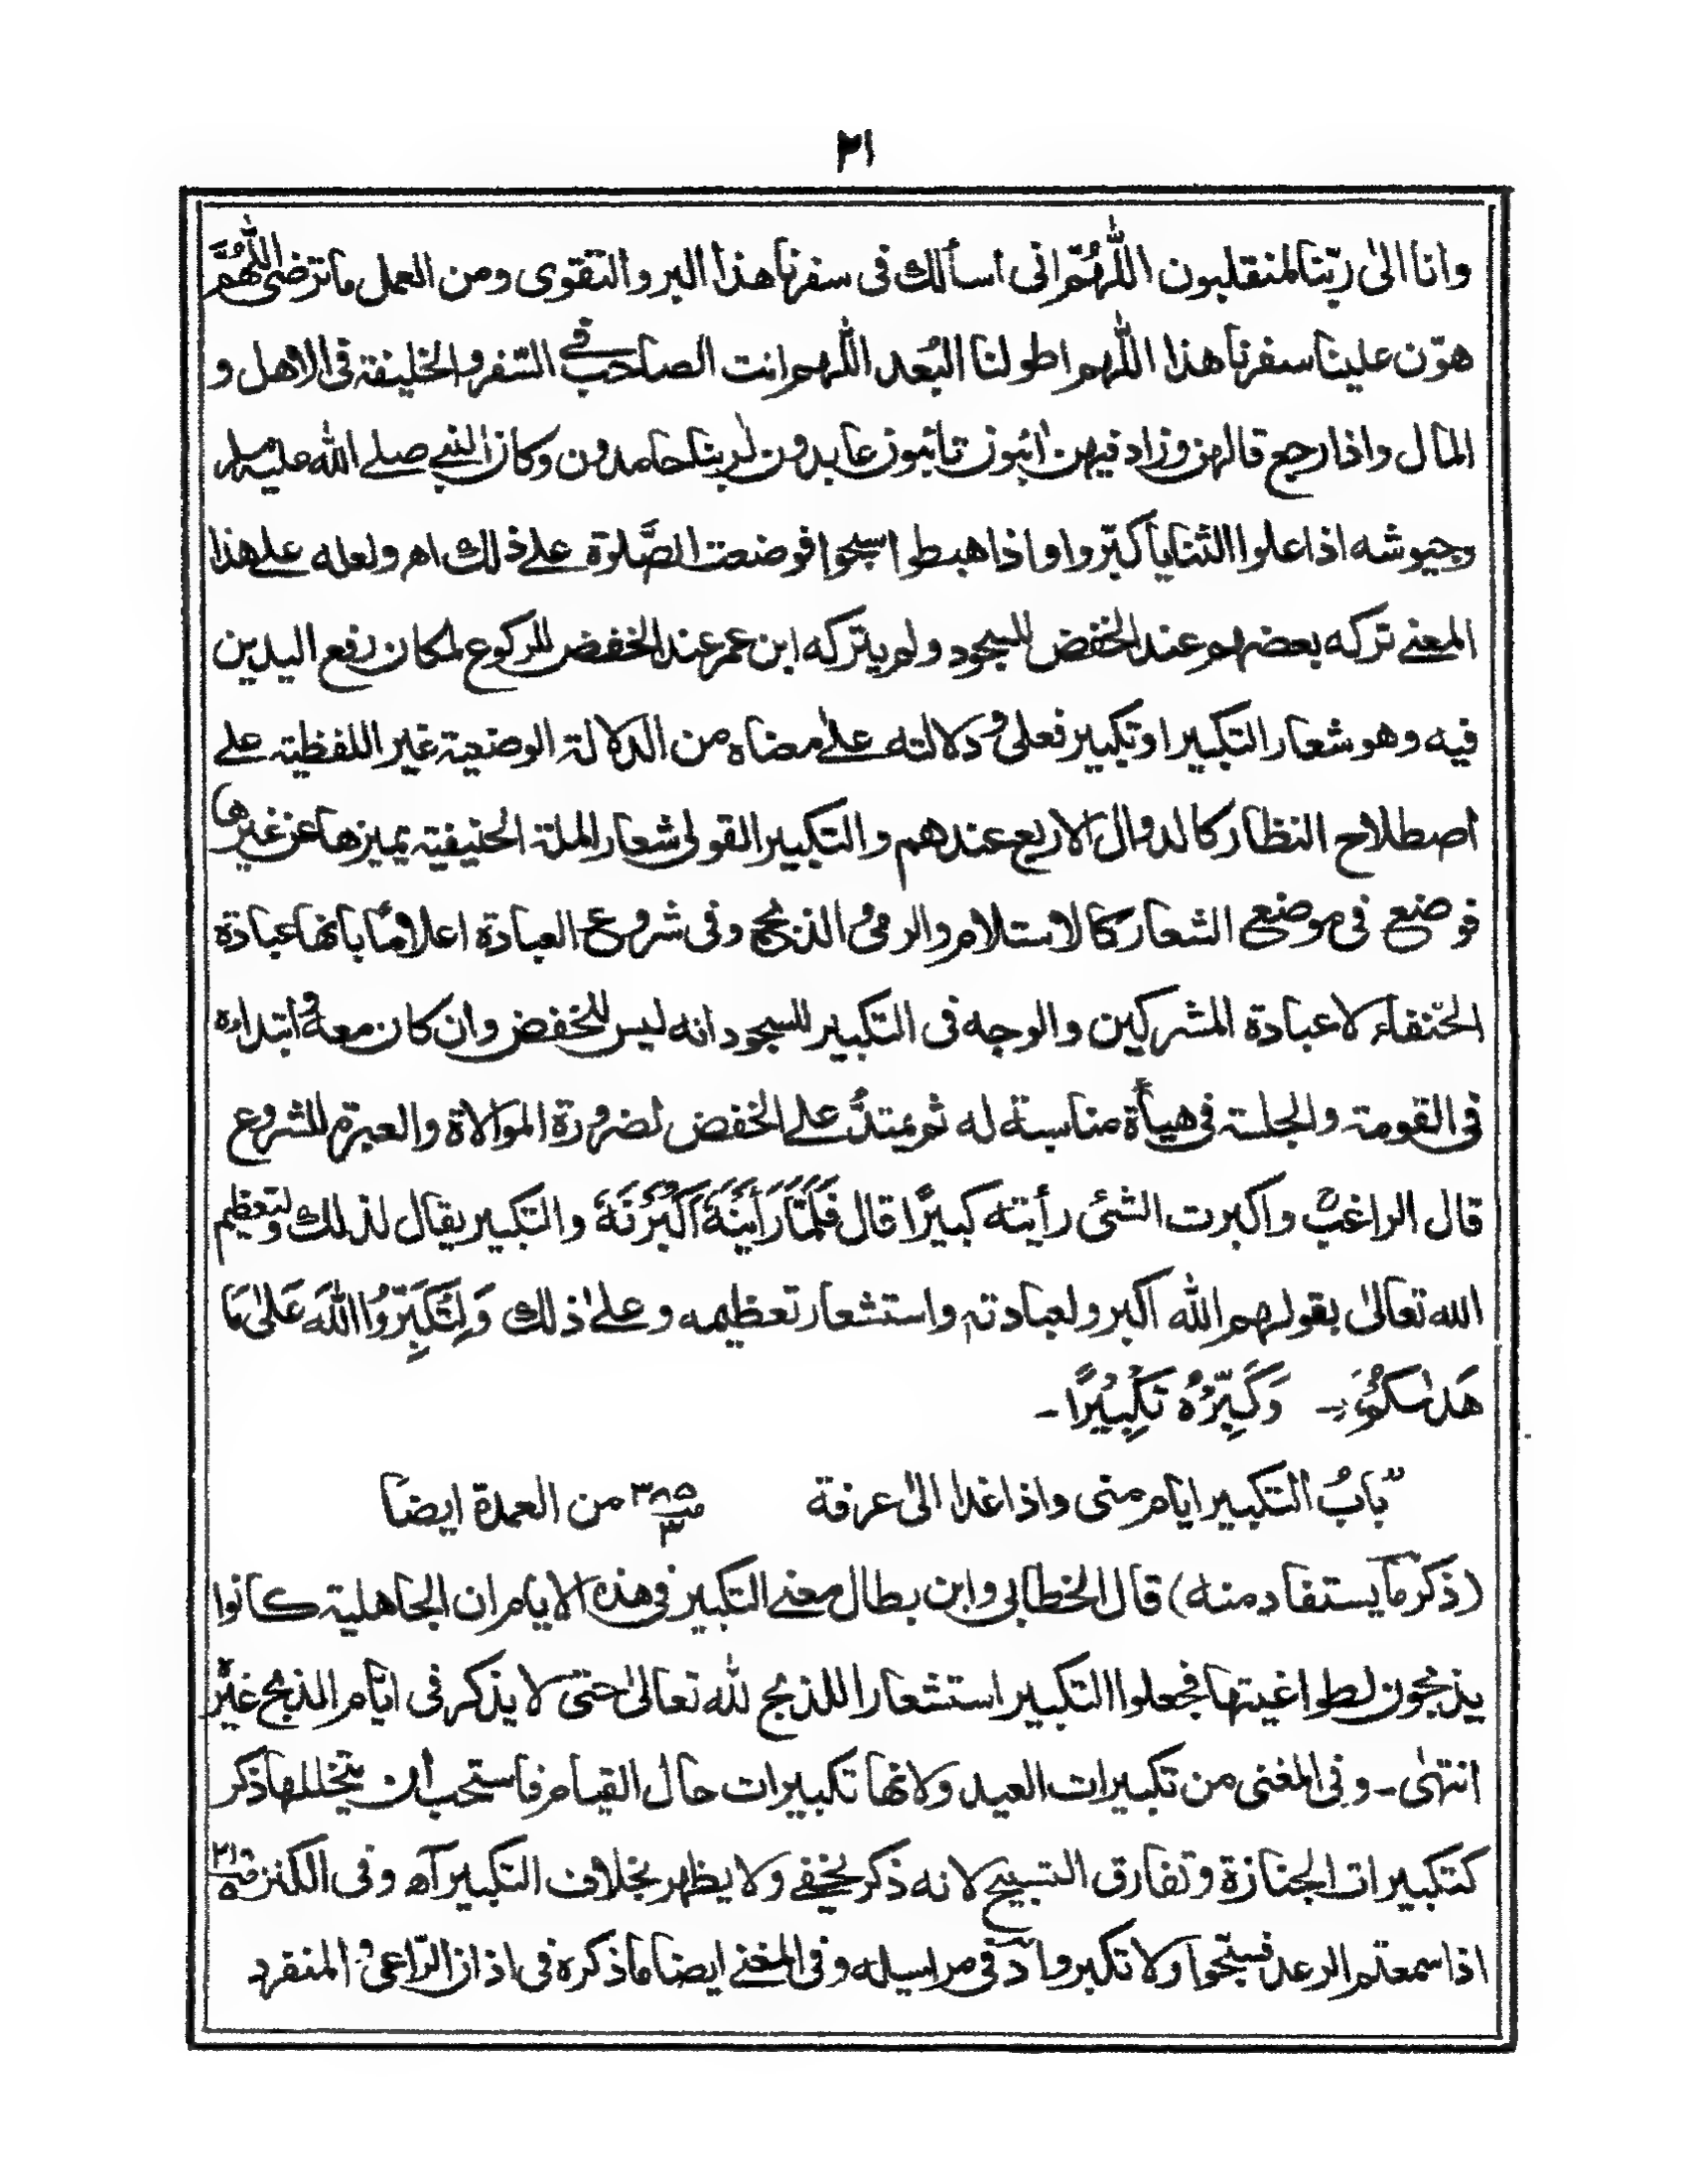 ٢١
وانا الىٰ ربّنا لمنقلبون اللّٰهُمّ انى اسألك فى سفرنا هذا البر والتقوى ومن العمل ما ترضى اللّٰهُمَّ
هوّن علينا سفرنا هذا اللّٰهم اطولنا البُعد اللّٰهم انت الصاحب فى السّفر والخليفة فى الاهل و
المال واذا رجع قالهن وزاد فيهن اٰئبون تائبون عابدون لربنا حامدون وكان النبى صلى الله عليه وسلم
وجيوشه اذا علوا الثنايا كبّروا واذا هبطوا سبحوا فوضعت الصَّلوٰة على ذلك اه ولعله على هذا
المعنى تركه بعضهم عند الخفض للسجود ولم يتركه ابن عمر عند الخفض للركوع لمكان رفع اليدين
فيه وهو شعار التكبير او تكبير فعلى ودلالته علىٰ معناه من الدلالة الوضعية غير اللفظية على
اصطلاح النظار كالدوال الاربع عندهم والتكبير القولى شعار الملة الحنيفية يميزها عن غيرها
فوضع فى موضع الشعار كالاستلام والرمى والذبح وفى شروع العبادة اعلامًا بانها عبادة
الحنفاء لا عبادة المشركين والوجه فى التكبير للسجود انه ليس للخفض وان كان معه وابتداءه
فى القومة والجلسة فى هيأة مناسبة له ثم يمتدُّ على الخفض لضرورة الموالاة والعبرة للشروع
قال الراغبؒ واكبرت الشئى رأيته كبيرًا قال فَلَمَّا رَأَيْنَهٗ اَكْبَرْنَهٗ والتكبير يقال لذلك ولتعظيم
الله تعالىٰ بقولهم اللّٰه اكبر ولعبادته واستشعار تعظيمه وعلىٰ ذلك وَلِتُكَبِّرُوا اللّٰهَ عَلىٰ مَا
هَدٰىكُمْ ۔ وَكَبِّرْهُ تَكْبِيْرًا ۔
"بابُ التكبير ايام منى واذا غدا الىٰ عرفة ص٣٨٥ ٣ من العمدة ايضًا
(ذكر ما يستفاد منه) قال الخطابى وابن بطال معنى التكبير فى هذه الايام ان الجاهلية كانوا
يذبحون لطواغيتها فجعلوا التكبير استشعارا للذبح للّٰه تعالىٰ حتى لا يذكر فى ايّام الذبح غيرٌ
انتهىٰ ۔ وفى المغنى من تكبيرات العيد ولانها تكبيرات حال القيام فاستحب ان يتخللها ذكر
كتكبيرات الجنازة وتفارق التسبيح لانه ذكر يخفى ولا يظهر بخلاف التكبير آه وفى الكنز ص٢١
اذا سمعتم الرعد فسبّحوا ولا تكبروا د فى مراسيله وفى المغنى ايضًا ما ذكره فى اذان الرّاعى والمنفرد